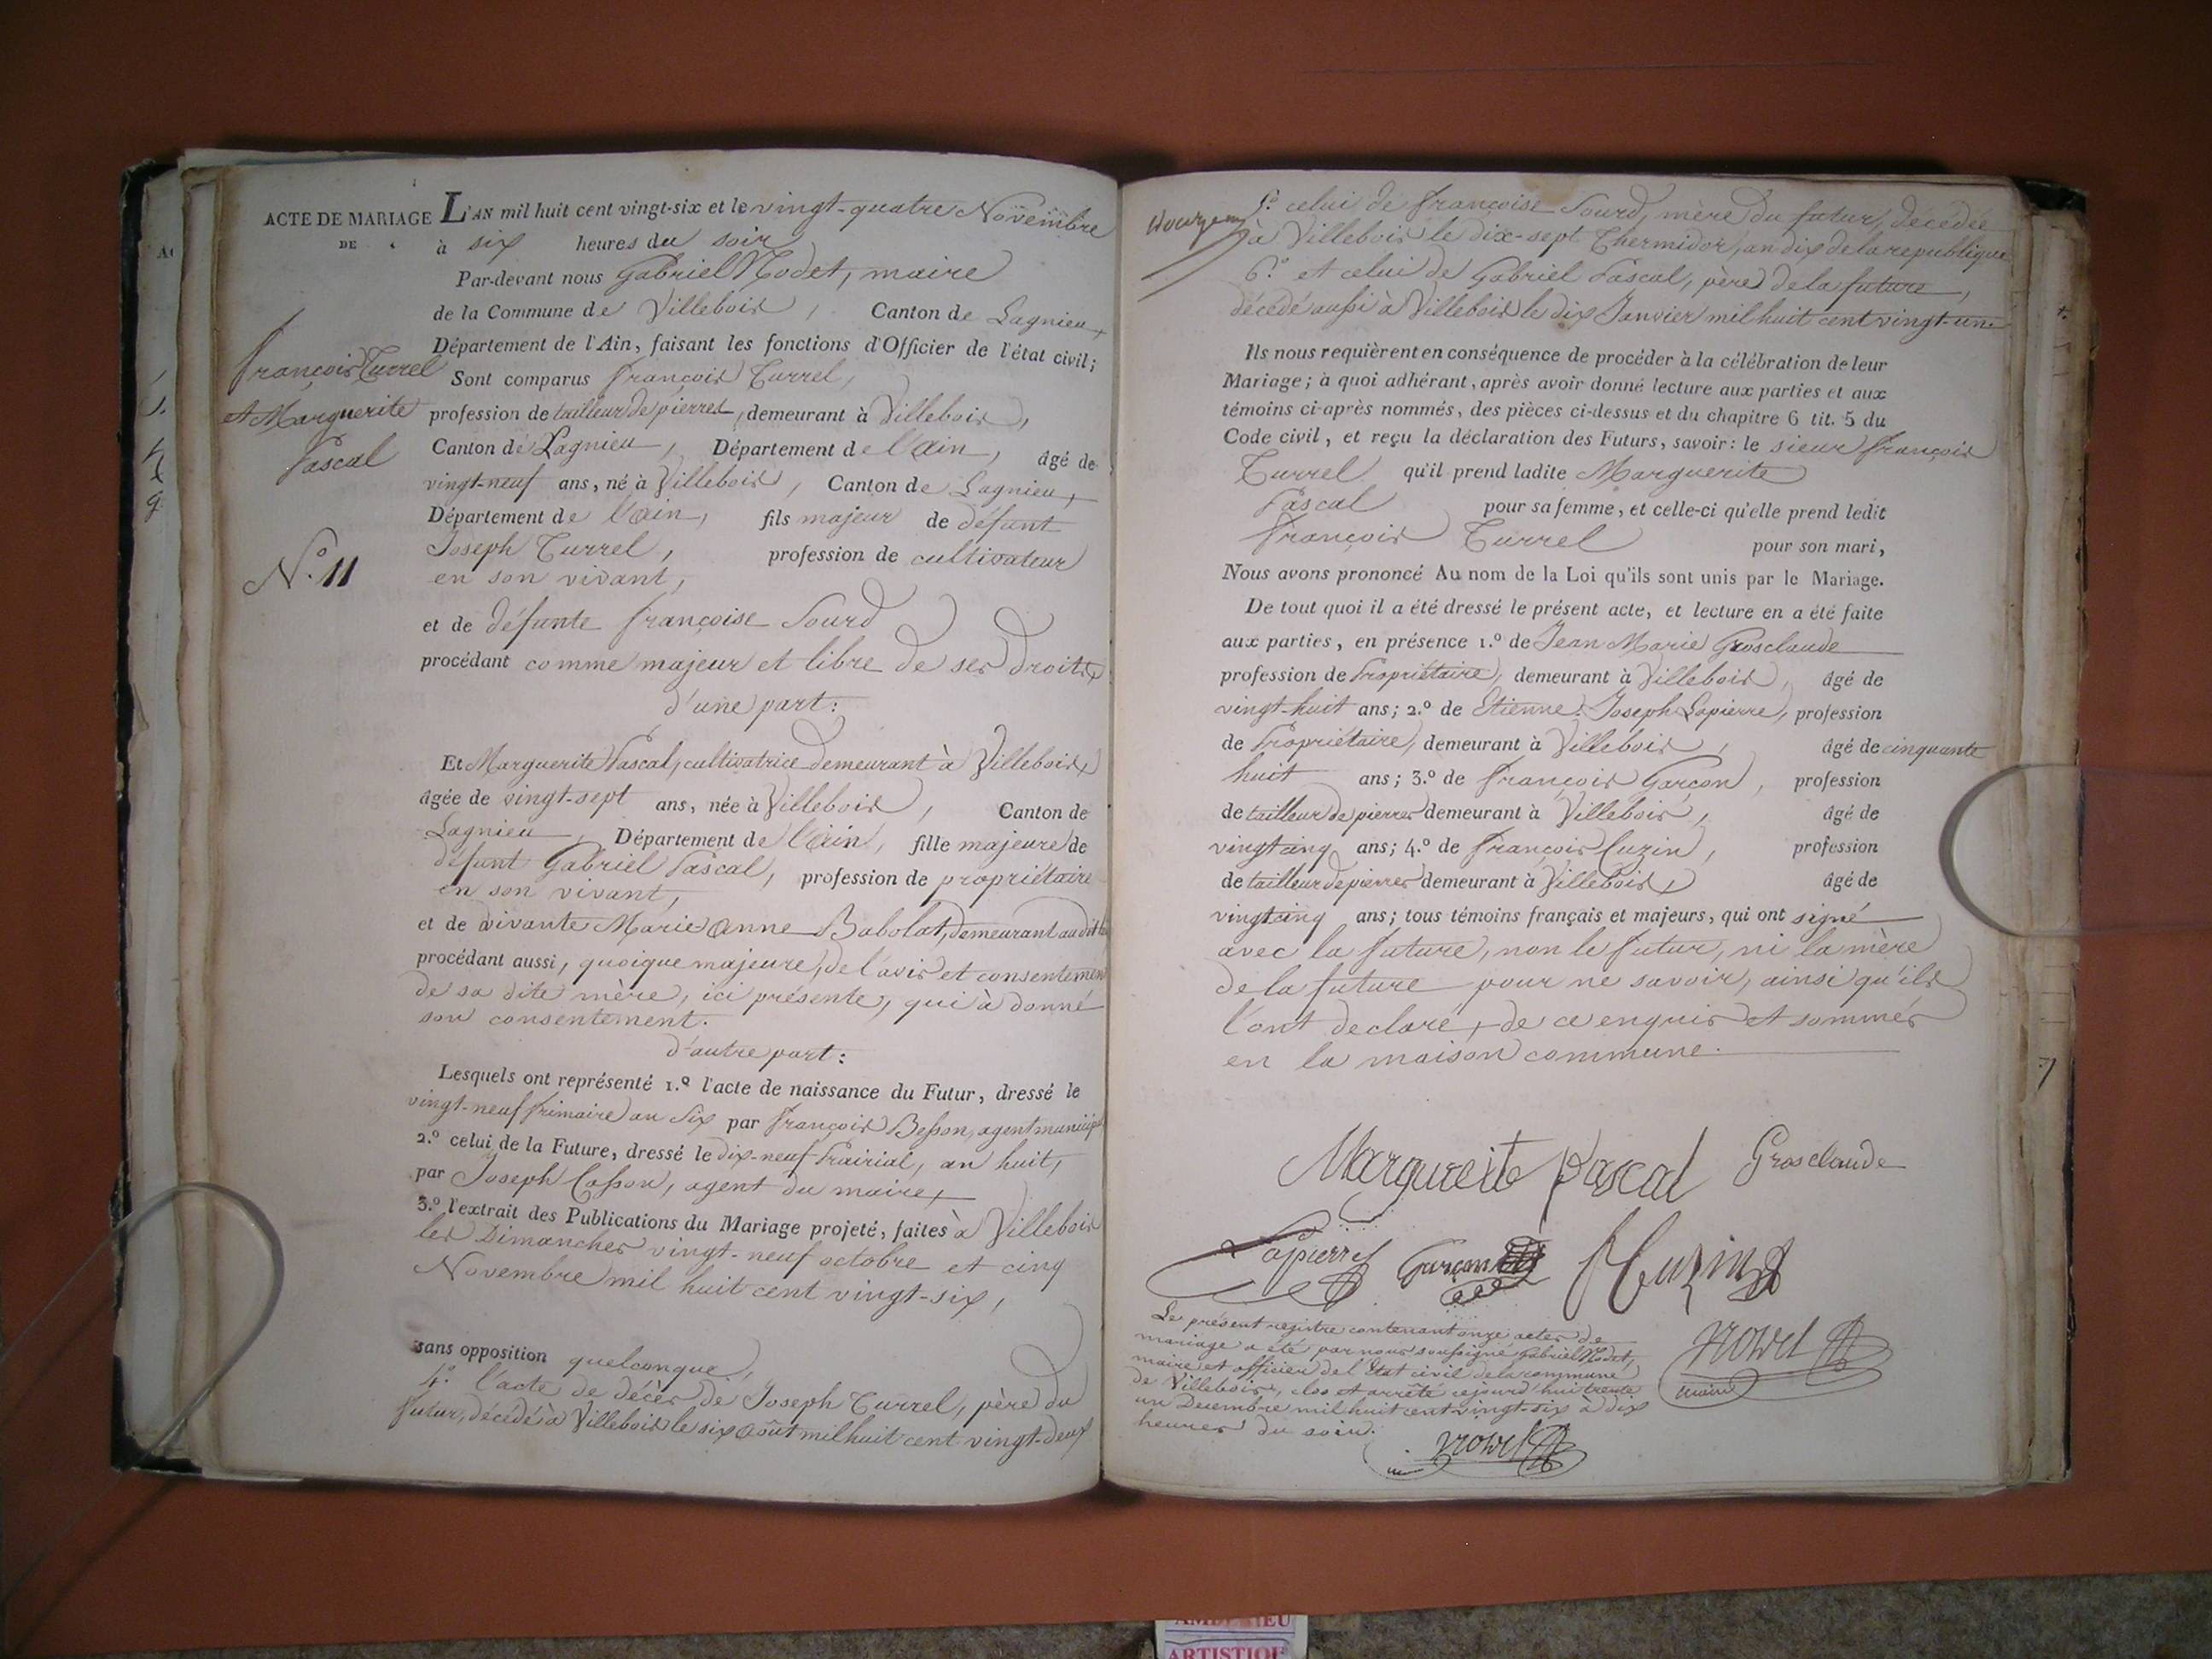 ACTE DE MARIAGE
DE
François Turrel
et Marguerite
Pascal
N.º 11
L'AN mil huit cent vingt-six et le vingt-quatre Novembre
à six heures du soir
Par-devant nous Gabriel Nodet, maire
de la Commune de Villebois, Canton de Lagnieu,
Département de l'Ain, faisant les fonctions d'Officier de l'état civil;
Sont comparus François Turrel,
profession de tailleur de pierres, demeurant à Villebois,
Canton de Lagnieu, Département de l'Ain, âgé de
vingt-neuf ans, né à Villebois, Canton de Lagnieu,
Département de l'Ain, fils majeur de défunt
Joseph Turrel, profession de cultivateur
en son vivant,
et de défunte Françoise Sourd
procédant comme majeur et libre de ses droits,
d'une part:
Et Marguerite Pascal, cultivatrice demeurant à Villebois,
âgée de vingt-sept ans, née à Villebois, Canton de
Lagnieu, Département de l'Ain, fille majeure de
défunt Gabriel Pascal, profession de propriétaire
en son vivant,
et de vivante Marie Anne Babolat, demeurant au dit lieu
procédant aussi, quoique majeure, de l'avis et consentement
de sa dite mère, ici présente, qui à donné
son consentement.
d'autre part:
Lesquels ont représenté 1.º l'acte de naissance du Futur, dressé le
vingt-neuf frimaire an Six par François Besson, agent municipal
2.º celui de la Future, dressé le dix-neuf Prairial, an huit,
par Joseph Casson, agent du maire,
3.º l'extrait des Publications du Mariage projeté, faites à Villebois
les Dimanches vingt-neuf octobre et cinq
Novembre mil huit cent vingt-six,
sans opposition quelconque,
4.º l'acte de décès de Joseph Turrel, père du
futur, décédé à Villebois le six août mil huit cent vingt-deux
5.º celui de Françoise Sourd, mère du futur, décédée
à Villebois le dix-sept Thermidor, an dix de la republique
6.º et celui de Gabriel Pascal, père de la future,
décédé aussi à Villebois le dix Janvier mil huit cent vingt-un.
Ils nous requièrent en conséquence de procéder à la célébration de leur
Mariage; à quoi adhérant, après avoir donné lecture aux parties et aux
témoins ci-après nommés, des pièces ci-dessus et du chapitre 6 tit. 5 du
Code civil, et reçu la déclaration des Futurs, savoir: le sieur François
Turrel qu'il prend ladite Marguerite
Pascal pour sa femme, et celle-ci qu'elle prend ledit
François Turrel pour son mari,
Nous avons prononcé Au nom de la Loi qu'ils sont unis par le Mariage.
De tout quoi il a été dressé le présent acte, et lecture en a été faite
aux parties, en présence 1.º de Jean Marie Grosclaude
profession de Propriétaire, demeurant à Villebois, âgé de
vingt-huit ans; 2.º de Etienne Joseph Lapierre, profession
de Propriétaire, demeurant à Villebois, âgé de cinquante
huit ans; 3.º de François Garçon, profession
de tailleur de pierres demeurant à Villebois, âgé de
vingt cinq ans; 4.º de François Cuzin, profession
de tailleur de pierres demeurant à Villebois, âgé de
vingt cinq ans; tous témoins français et majeurs, qui ont signé
avec la future, non le futur, ni la mère
de la future pour ne savoir, ainsi qu'ils
l'ont declaré, de ce enquis et sommés
en la maison commune.
Marguerite Pascal Grosclaude
Lapierre Garçon Cuzin
Nodet
maire
Le présent registre contenant onze actes de
mariage a été par nous soussigné Gabriel Nodet,
maire et officier de l'Etat civil de la commune
de Villebois, clos et arrêté cejourd'hui trente
un Decembre mil huit cent vingt-six à dix
heures du soir.
Nodet
ARTISTIQUE